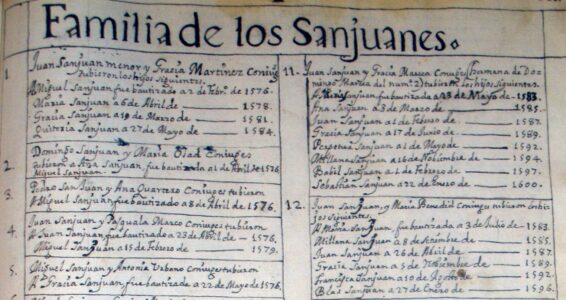 Familia de los Sanjuanes.
1.
Juan Sanjuan menor y Gracia Martinez Coniuges
tubieron los hijos siguientes.
A Miguel Sanjuan fue bautizado a 2 de Febr. de 1576.
Maria Sanjuan a 6 de Abril de 1578.
Gracia Sanjuan a 19 de Marzo de 1581.
Quiteria Sanjuan a 27 de Mayo de 1584.
2.
Domingo Sanjuan y Maria Coniuges
tubieron a Ana Sanjuan, fue bautizada a 1 de Abril de 1576
Miguel Sanjuan.
3.
Pedro Sanjuan y Ana Quartero Coniuges tubieron
A Miguel Sanjuan fue bautizado a 8 de Abril de 1576.
4.
Juan Sanjuan y Pasquala Marco Coniuges tubieron
A Juan Sanjuan fue bautizado a 23 de Abril de 1576.
Miguel Sanjuan a 15 de Febrero de 1579.
5.
Miguel Sanjuan y Antonia Urbano Coniuges tubieron
A Gracia Sanjuan, fue bautizada a 22 de Mayo de 1576
11.
Juan Sanjuan y Gracia Marcea Coniuges (hermana de Do-
mingo Marcea del num. 2) tubieron los hijos siguientes.
Sanjuan, fue bautizada a de Mayo de 1583.
Ana Sanjuan a 3 de Marzo de 1585.
Juan Sanjuan a 1 de Febrero de 1587.
Gracia Sanjuan a 17 de Junio de 1589.
Perpetua Sanjuan a 21 de Mayo de 1592.
Atillana Sanjuan a 16 de Noviembre de 1594.
Babil Sanjuan a 1 de Febrero de 1597.
Sebastian Sanjuan a 22 de Enero de 1600.
12.
Juan Sanjuan, y Maria Benedid coniuges tubieron los hi-
jos siguientes.
A Maria Sanjuan, fue bautizada a 3 de Julio de 1583.
Atillana Sanjuan a 8 de Setiembre de 1585.
Juan Sanjuan a 26 de Abril de 1587.
Gracia Sanjuan a 5 de Nobiembre de 1589.
Francisca Sanjuan a 10 de Agosto de 1592.
Blas Sanjuan a 27 de Enero de 1596.